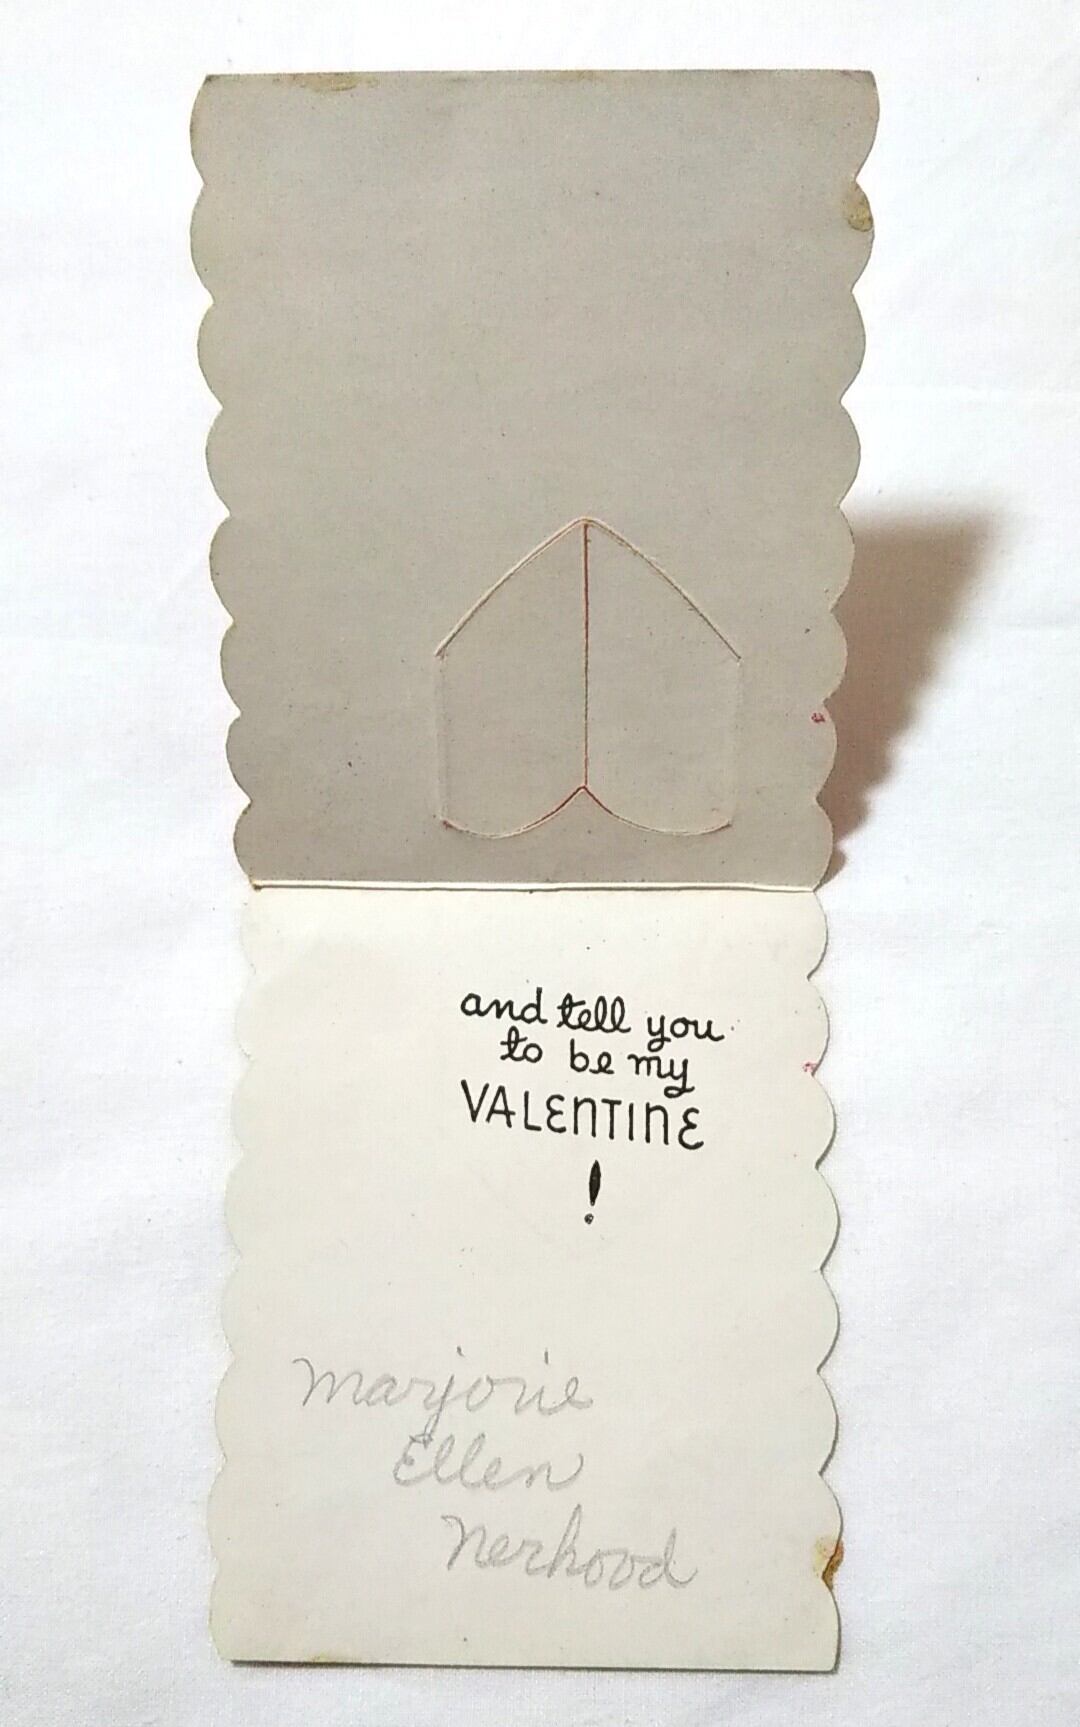 and tell you
to be my
VALENTINE
!
Marjorie
Ellen
Nerhood